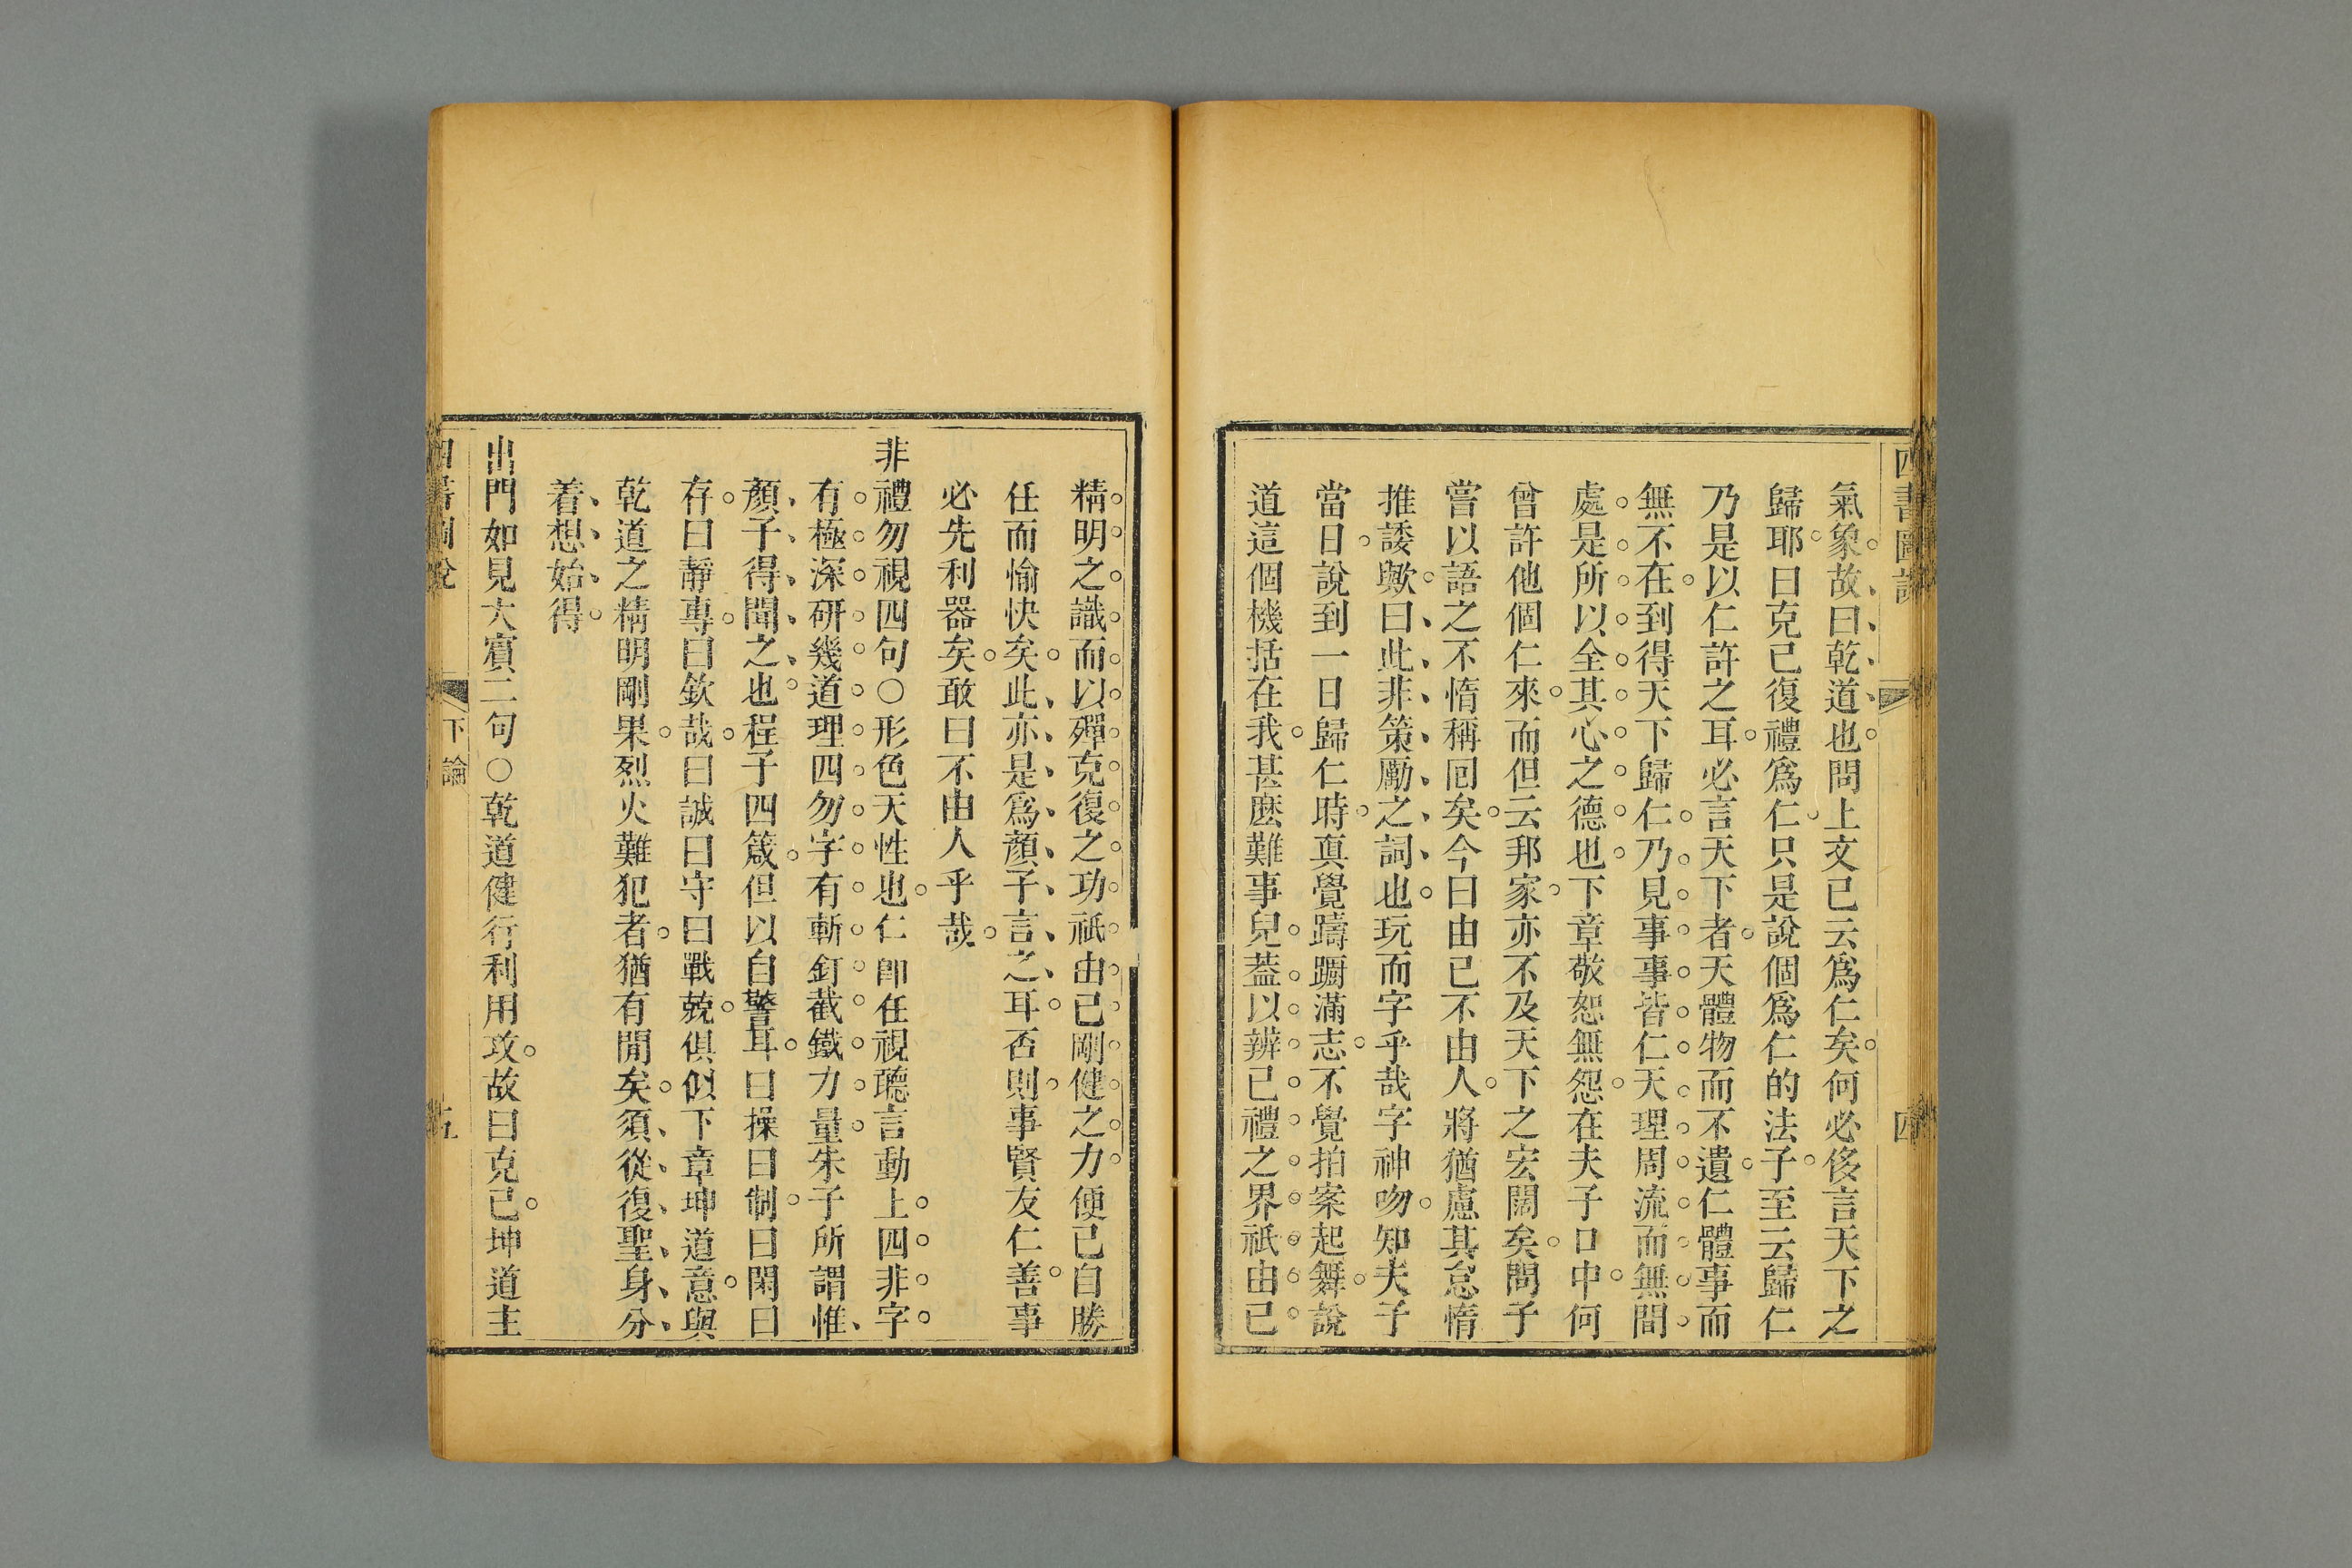 四書圖說
四
氣象故曰乾道也問上文已云爲仁矣何必侈言天下之
歸耶曰克己復禮爲仁只是說個爲仁的法子至云歸仁
乃是以仁許之耳必言天下者天體物而不遺仁體事而
無不在到得天下歸仁乃見事事皆仁天理周流而無間
處是所以全其心之德也下章敬恕無怨在夫子口中何
曾許他個仁來而但云邦家亦不及天下之宏闊矣問子
嘗以語之不惰稱囘矣今曰由己不由人將猶慮其怠惰
推諉歟曰此非策勵之詞也玩而字乎哉字神吻知夫子
當日說到一日歸仁時眞覺躊躕滿志不覺拍案起舞說
道這個機括在我甚麽難事兒蓋以辨己禮之界祇由己
精明之識而以殫克復之功祇由己剛健之力便已自勝
任而愉快矣此亦是爲顏子言之耳否則事賢友仁善事
必先利器矣敢曰不由人乎哉
非禮勿視四句○形色天性也仁卽任視聽言動上四非字
有極深研幾道理四勿字有斬釘截鐵力量朱子所謂惟
顏子得聞之也程子四箴但以自警耳曰操曰制曰閑曰
存曰靜專曰欽哉曰誠曰守曰戰兢俱似下章坤道意與
乾道之精明剛果烈火難犯者猶有閒矣須從復聖身分
着想始得
出門如見大賓二句○乾道健行利用攻故曰克己坤道主
四書圖說
下論
五